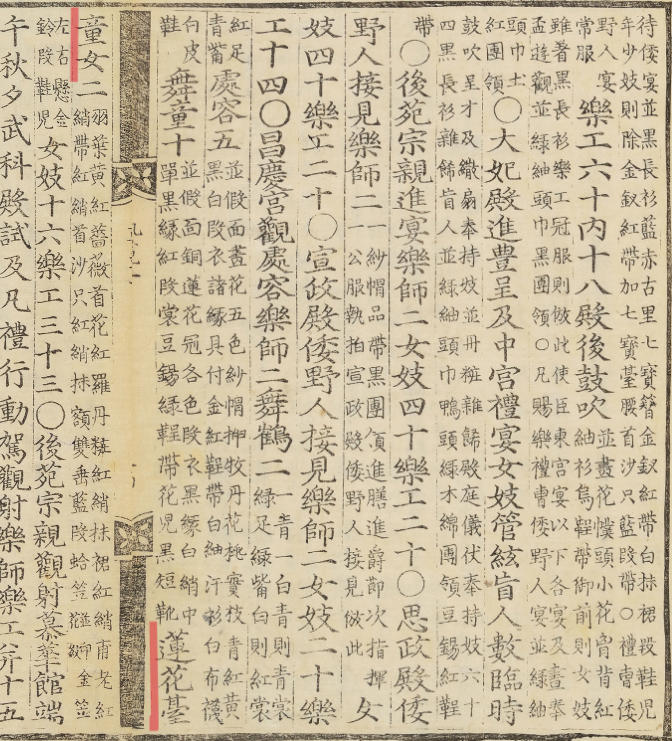 待倭宴並黑長衫藍赤古里七寶簪金釵紅帶白抹裙段鞋兒
年少妓則除金釵紅帶加七寶䯻腰首沙只藍段帶○禮曹倭
野人宴
常服
樂工六十內十八殿後鼓吹
並畫花幞頭小花冑背紅
紬衫烏鞓帶御前則女妓
雖著黑長衫樂工冠服則倣此使臣東宮宴以下各宴及畫舉
盃遊觀並綠紬頭巾黑團領○凡賜樂禮曹倭野人宴並綠紬
頭巾土
紅團領
○大妃殿進豊呈及中宮禮宴女妓管絃盲人數臨時
鼓吹呈才及繖扇奉持妓並丹粧雜飾殿庭儀仗奉持妓六十
四黑長衫雜飾盲人並綠紬頭巾鴨頭綠木綿團領豆錫紅鞓
帶
○後苑宗親進宴樂師二女妓四十樂工二十○思政殿倭
野人接見樂師二
一紗帽品帶黑團領進膳進爵節次指揮
一公服執拍宣政殿倭野人接見倣此
女
妓四十樂工二十○宣政殿倭野人接見樂師二女妓二十樂
工十四○昌慶宮觀處容樂師二舞鶴二
一青一白青則青裳
綠足綠觜白則紅裳
紅足
青觜
處容五
並假面畫花五色紗帽押牧丹花桃實枝青紅黃
黑白段衣諸緣具付金紅鞓帶白紬汗衫白布襪
白皮
鞋
舞童十
並假面銅蓮花冠各色段衣黑緣白綃中
單黑綠紅段裳豆錫綠鞓帶花兒黑短靴
蓮花臺
童女二
羽葉黃紅薔薇首花紅羅丹粧紅綃抹裙紅綃甫老紅
綃帶紅綃首沙只紅綃抹額雙番藍段蛤笠金笠
左右懸金
鈴段鞋兒
女妓十六樂工三十三○後苑宗親觀射慕華館端
午秋夕武科殿試及凡禮行動駕觀射樂師樂工并十五